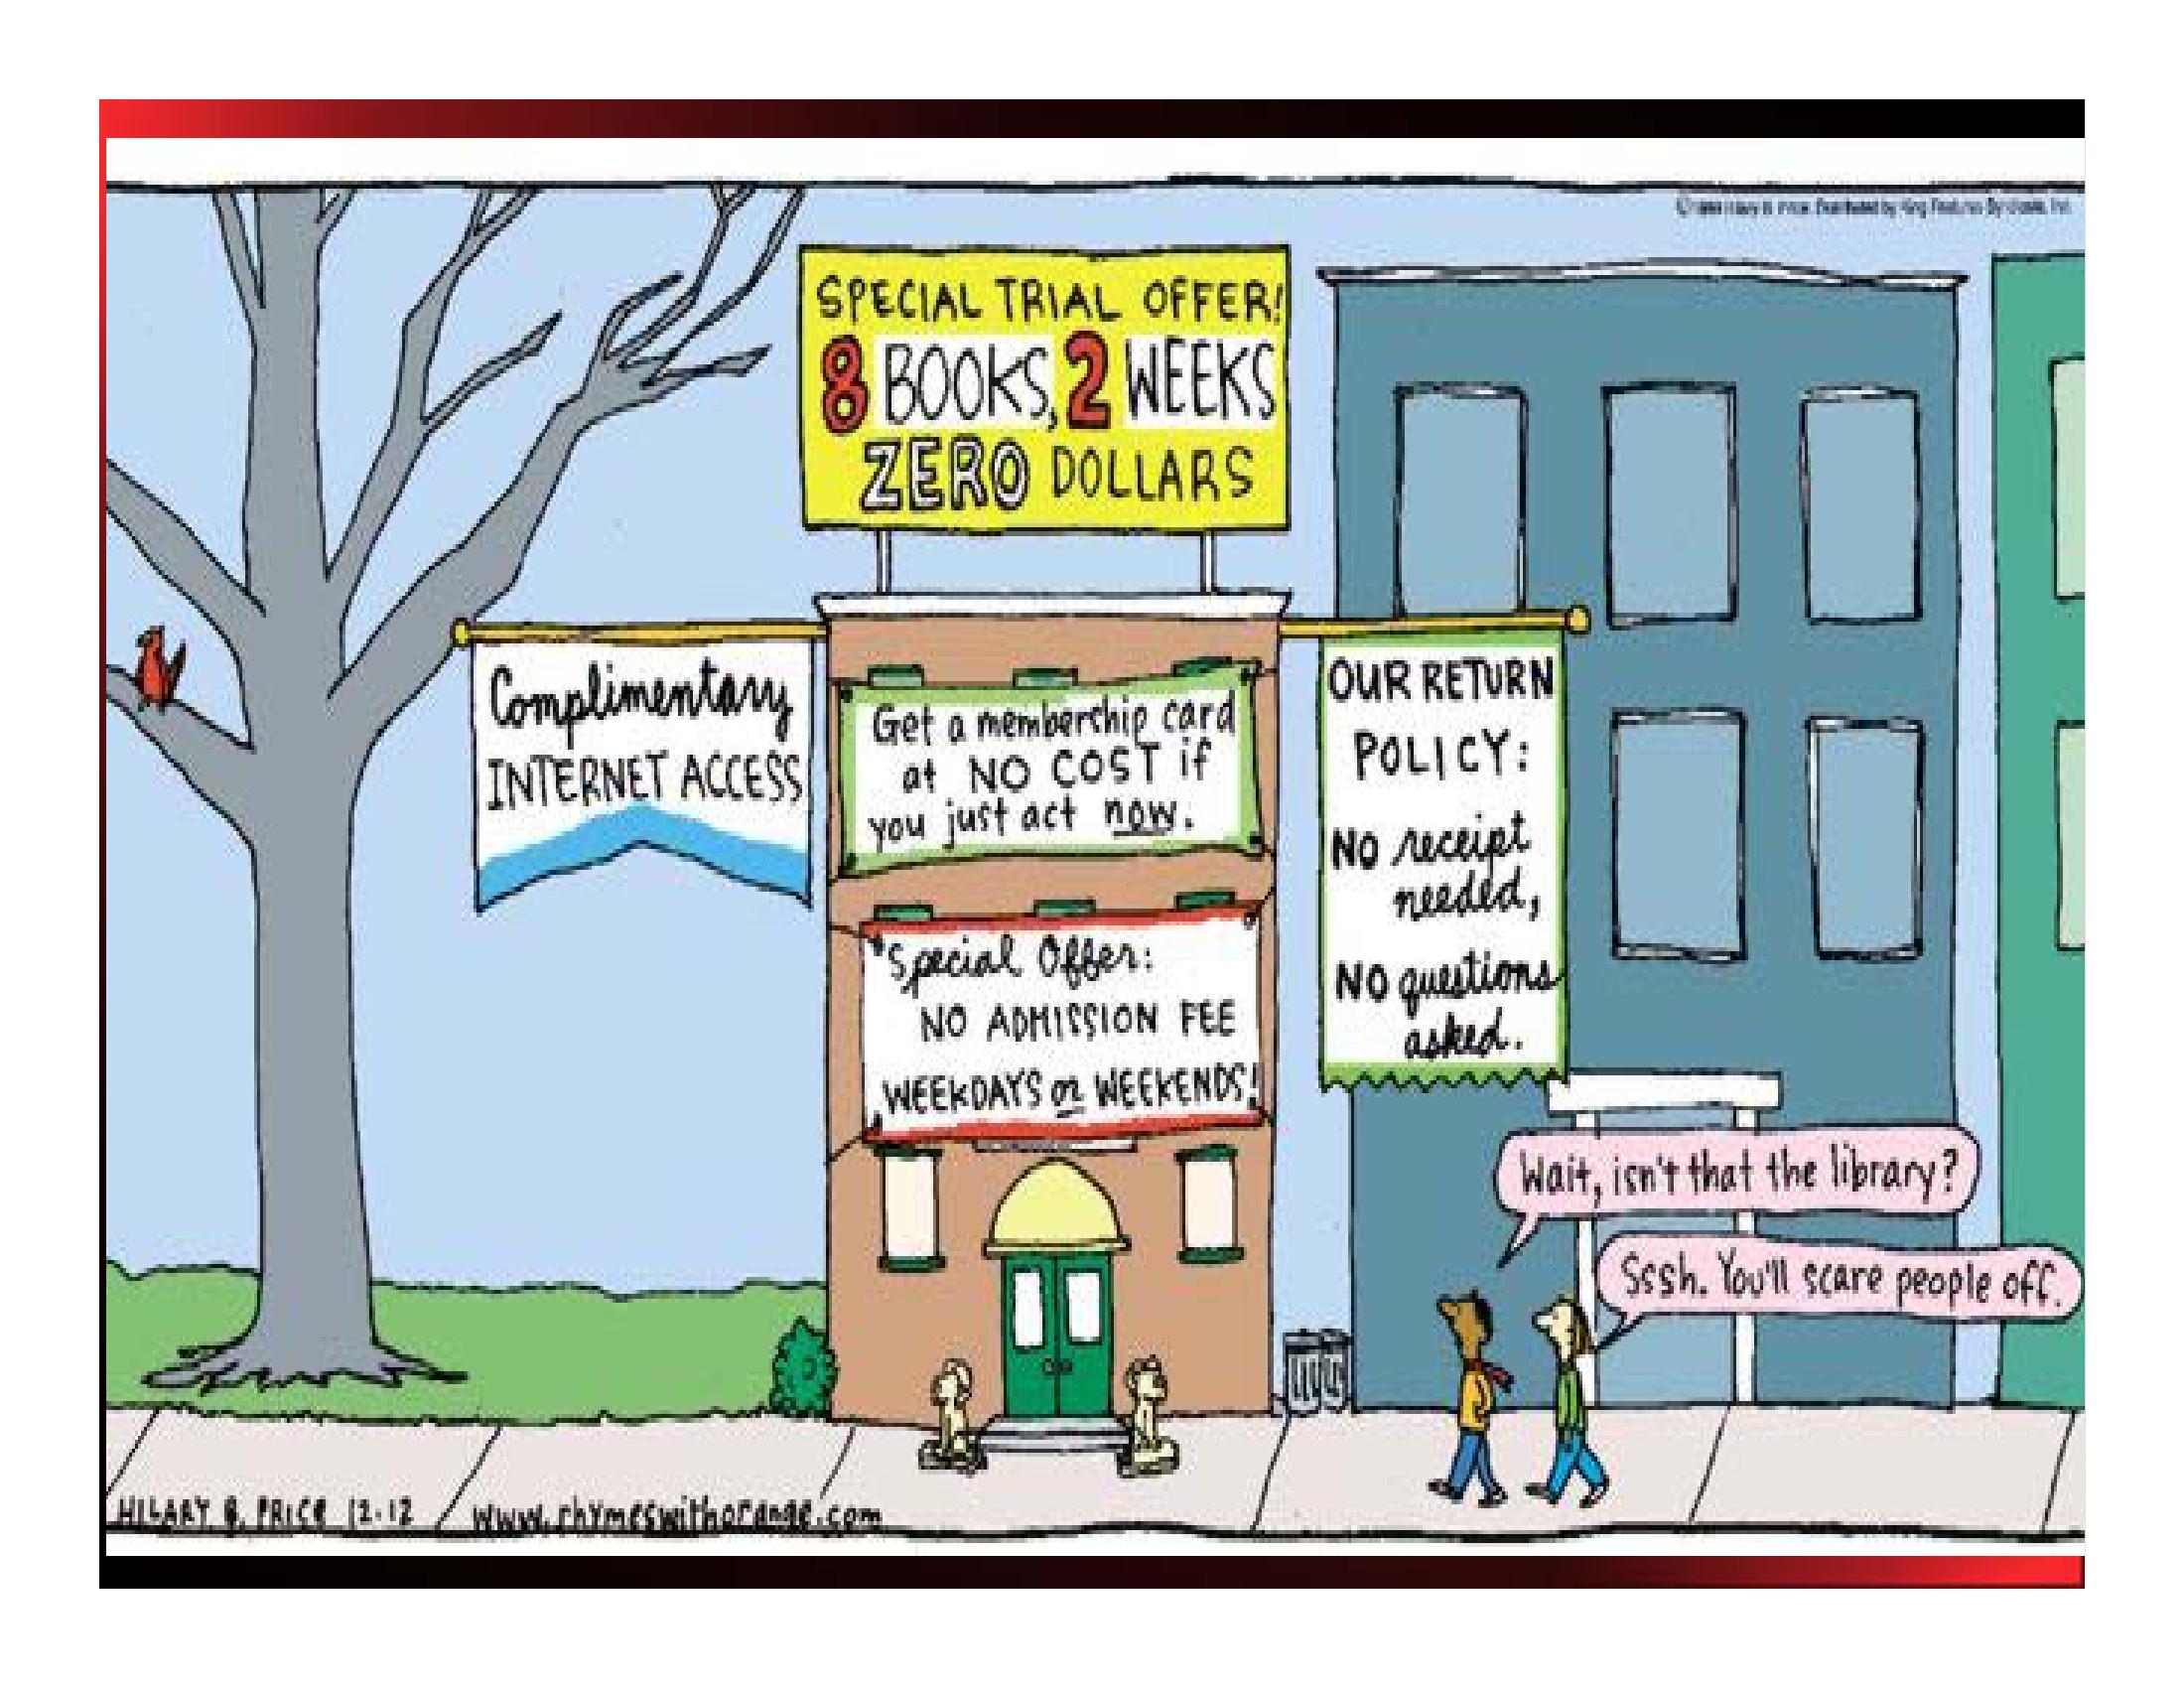 SPECIAL TRIAL OFFER!
8 BOOKS, 2 WEEKS
ZERO DOLLARS
Complimentary
INTERNET ACCESS
Get a membership card
at NO COST if
you just act now.
Special Offer:
NO ADMISSION FEE
WEEKDAYS or WEEKENDS!
OUR RETURN
POLICY:
NO receipt
needed,
NO questions
asked.
Wait, isn't that the library?
Sssh. You'll scare people off.
HILARY B. PRICE 12·12
www.rhymeswithorange.com